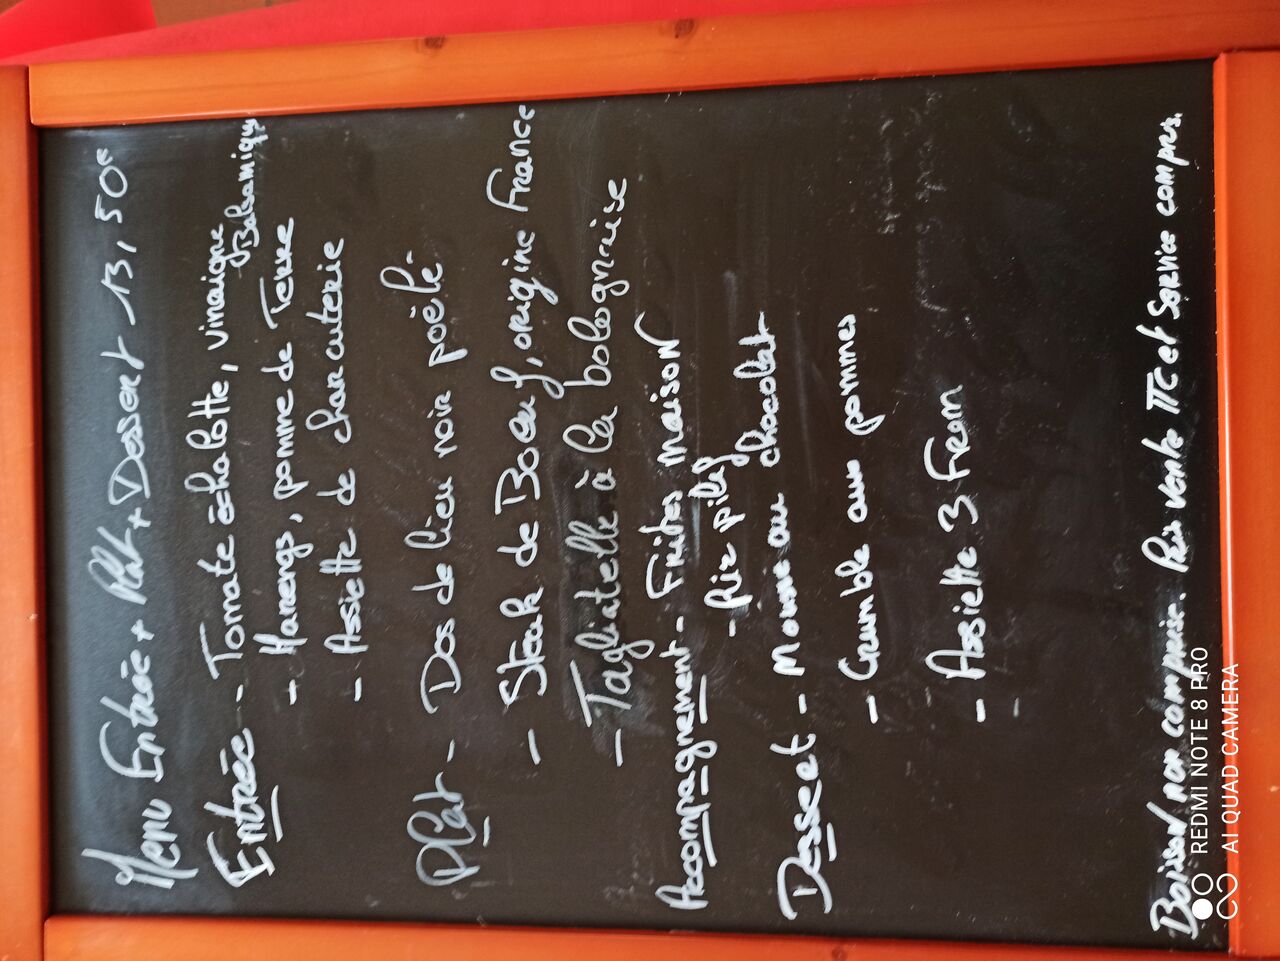 Menu Entrée + Plat + Dessert 13,50€
Entrée - Tomate échalotte, vinaigre
Balsamique
- Harengs, pomme de Terre
- Assiette de charcuterie
Plat - Dos de lieu noir poêlé
- Steak de Boeuf, origine France
- Tagliatelle à la bolognaise
Accompagnement - Frites maison
- Riz pilaf
Dessert - Mousse au chocolat
- Crumble aux pommes
- Assiette 3 From
-
Boisson non comprise. Prix vente TTC et Service compris.
REDMI NOTE 8 PRO
AI QUAD CAMERA